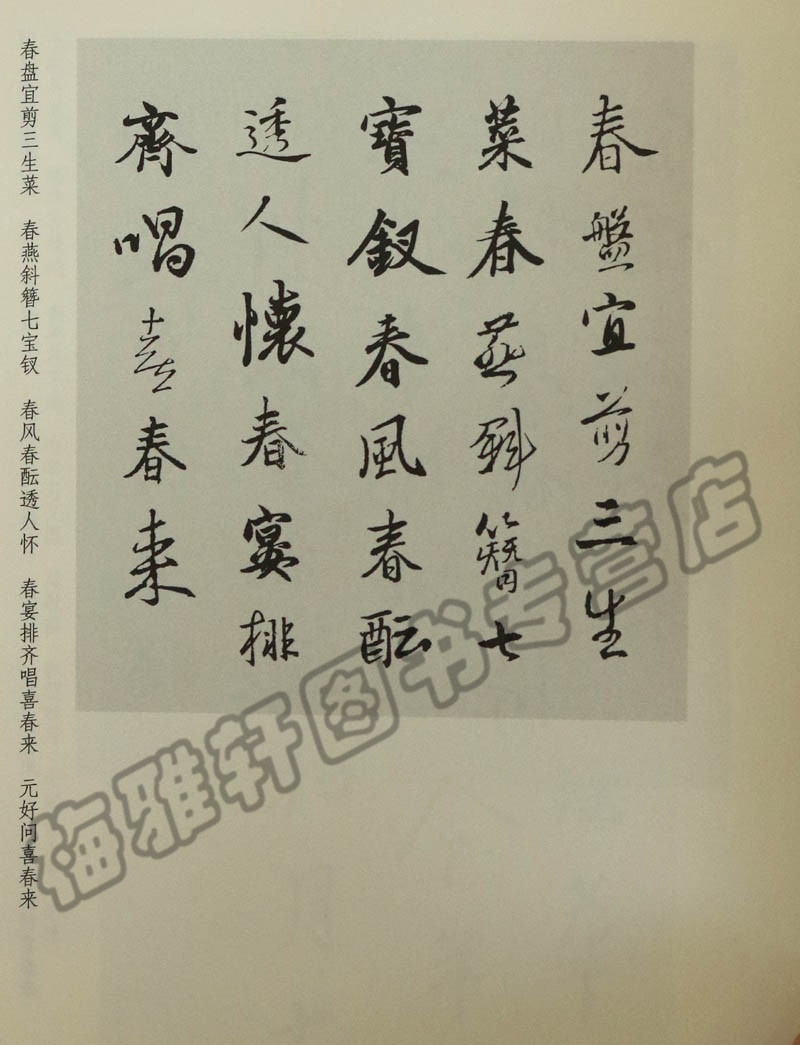 春盤宜剪三生
菜春燕斜簪七
寶釵春風春酝
透人懷春宴排
齊唱喜春来
春盘宜剪三生菜 春燕斜簪七宝钗 春风春酝透人怀 春宴排齐唱喜春来 元好问喜春来
梅雅轩图书专营店